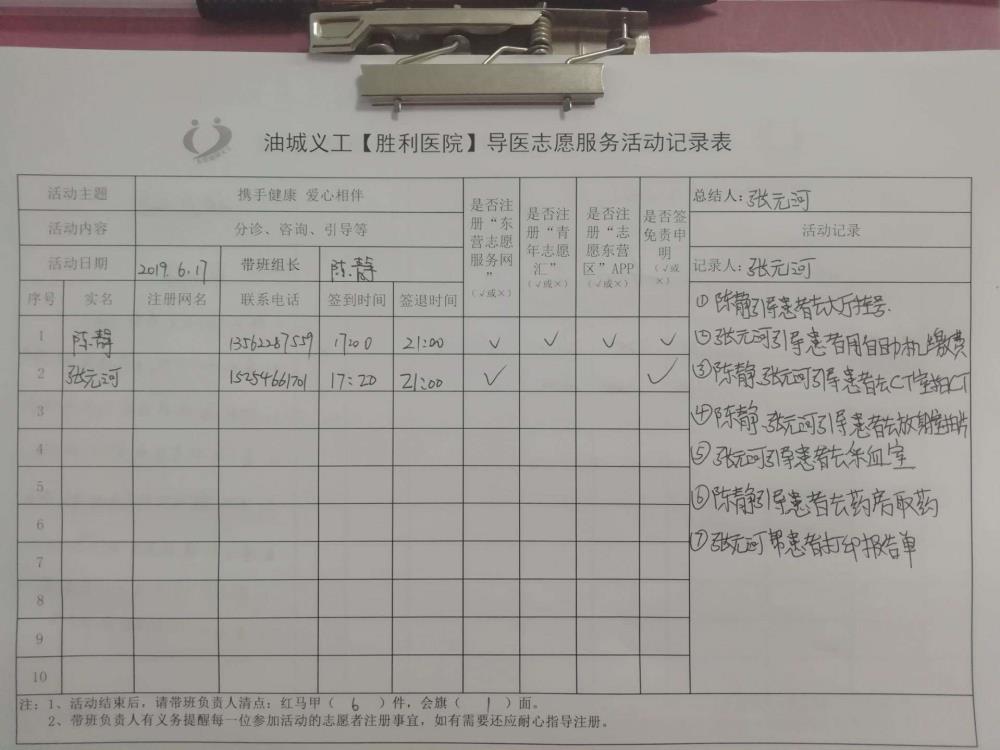 油城义工【胜利医院】导医志愿服务活动记录表
活动主题 携手健康 爱心相伴
活动内容 分诊、咨询、引导等
活动日期 2019.6.17 带班组长 陈静
序号 实名 注册网名 联系电话 签到时间 签退时间
是否注册“东营志愿服务网”（√或×）
是否注册“青年志愿汇”（√或×）
是否注册“志愿东营区”APP（√或×）
是否签免责申明（√或×）
1 陈静 13562287559 1720 21:00 √ √ √ √
2 张元河 15254661701 17:20 21:00 √ √
3
4
5
6
7
8
9
10
总结人：张元河
活动记录
记录人：张元河
①陈静引导患者去大厅挂号.
②张元河引导患者用自助机缴费
③陈静.张元河引导患者去CT室拍CT
④陈静.张元河引导患者去放射室拍片
⑤张元河引导患者去采血室
⑥陈静引导患者去药房取药
⑦张元河帮患者打印报告单
注：1、活动结束后，请带班负责人清点：红马甲（ 6 ）件，会旗（ 1 ）面。
2、带班负责人有义务提醒每一位参加活动的志愿者注册事宜，如有需要还应耐心指导注册。